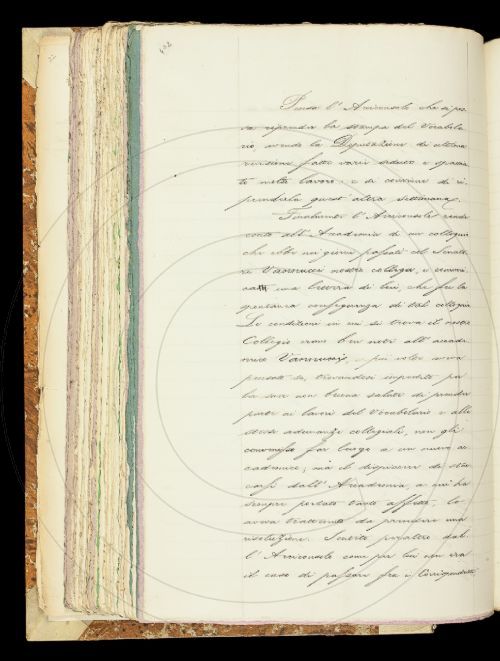 402
Pensa l'Arciconsolo che si possa
sa riprender la stampa del Vocabola
rio, avendo la Deputazione di ultima
revisione fatte varie sedute e spaccia
to molto lavoro; e di cominciare di ri
prenderla quest'altra settimana.
Finalmente l'Arciconsolo rende
conto all'Accademia di un colloquio
che ebbe nei giorni passati col Senato
re Vannucci nostro collega, e comuni
ca una lettera di lui, che fu la
spontanea conseguenza di tal colloquio.
Le condizioni in cui si trova il nostro
Collegio erano ben note all'accade
mico Vannucci, e più volte aveva
pensato se, trovandosi impedito per
la sua non buona salute di prender
parte ai lavori del Vocabolario e alle
stesse adunanze collegiali, non gli
convenisse far luogo a un nuovo ac
cademico; ma il dispiacere di stac
carsi dall'Accademia, a cui ha
sempre portato tanto affetto, lo
aveva trattenuto da prendere una
risoluzione. Sentito peraltro dal
l'Arciconsolo come per lui non era
il caso di passare fra i Corrispondenti,